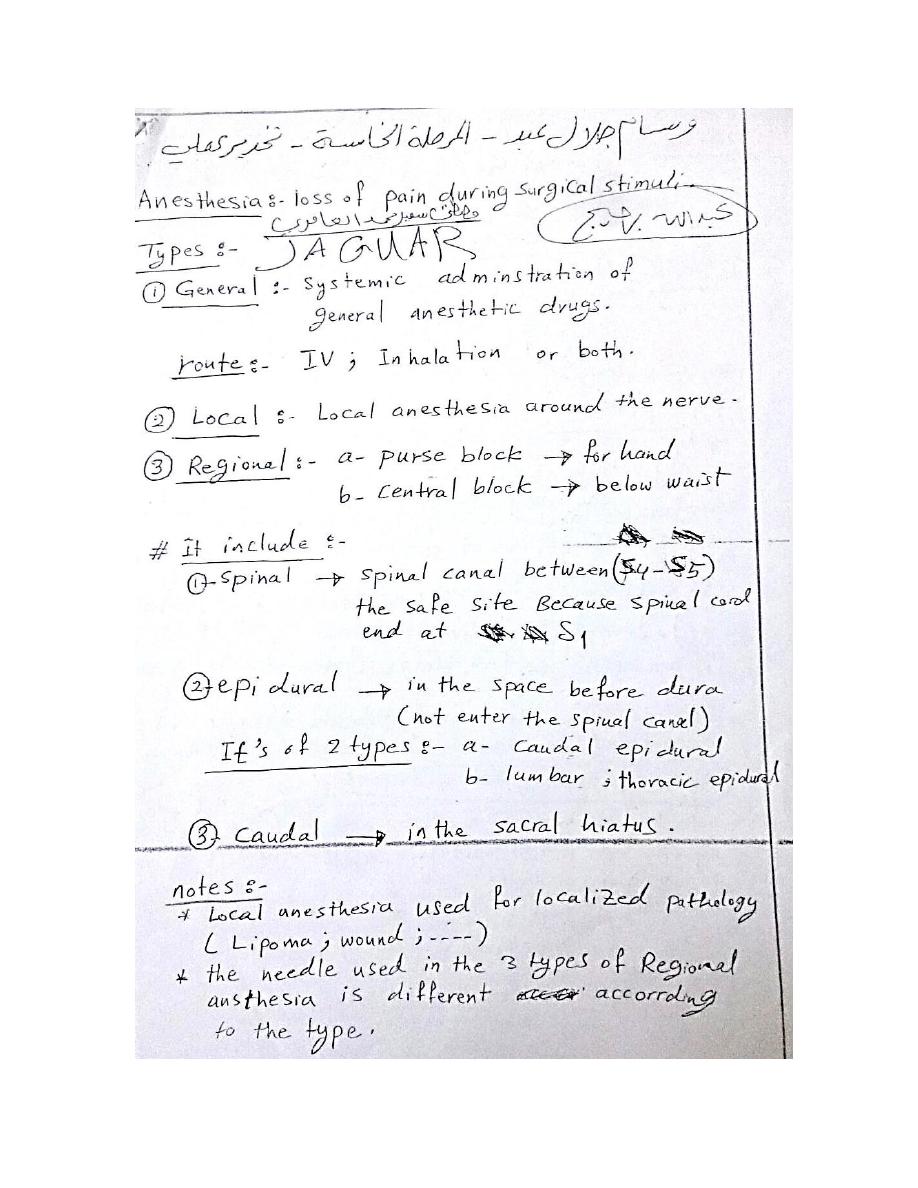 وسام جلال عبد - المرحلة الخامسة - تخدير عملي
Anesthesia :- loss of pain during surgical stimuli.
Types :- JAGUAR
① General :- Systemic adminstration of
general anesthetic drugs.
route :- IV ; Inhalation or both.
② Local :- Local anesthesia around the nerve.
③ Regional :- a- purse block → for hand
b- Central block → below waist
# It include :-
①- Spinal → spinal canal between (S4-S5)
the safe site Because spinal cord
end at S1
②- epidural → in the space before dura
(not enter the spinal canal)
It's of 2 types :- a- Caudal epidural
b- lumbar ; thoracic epidural
③- Caudal → in the sacral hiatus.
notes :-
* Local anesthesia used for localized pathology
( Lipoma ; wound ; ----)
* the needle used in the 3 types of Regional
ansthesia is different accorrding
to the type.